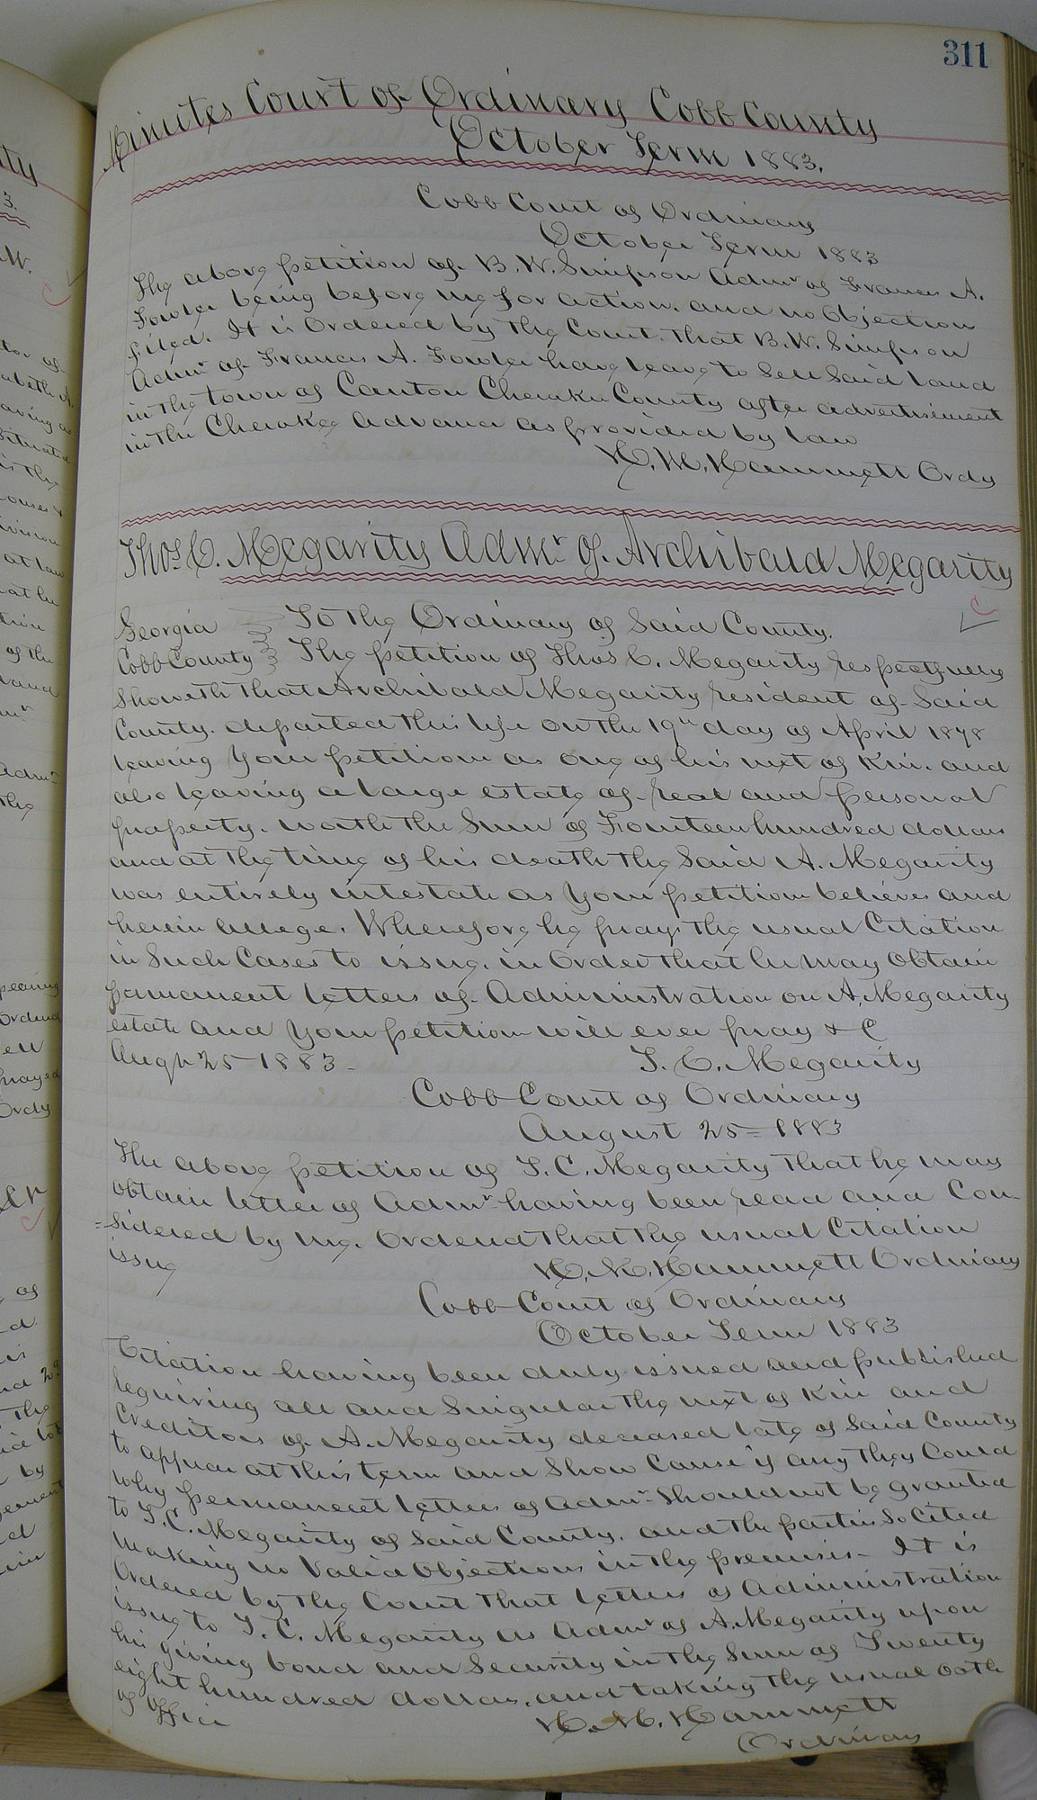 311
Minutes Court of Ordinary Cobb County
October Term 1883.
Cobb Court of Ordinary
October Term 1883
The above petition of B. W. Simpson Admr of Frances A.
Fowler being before me for action. and no Objection
filed. It is Ordered by the Court. that B. W. Simpson
Admr of Frances A. Fowler have leave to Sell Said Land
in the town of Canton Cherokee County after advertisement
in the Cherokee Advance as provided by law
H. M. Hammett Ordy
Thos. C. Megarity Admr. of. Archibald Megarity
Georgia
Cobb County
To the Ordinary of Said County.
The petition of Thos C. Megarity respectfully
Showeth that Archibald Megarity resident of Said
County. departed this life on the 19th day of April 1878
leaving your petition as one of his next of Kin. and
also leaving a large estate of real and personal
property. worth the Sum of Fourteen hundred dollars
and at the time of his death the Said A. Megarity
was entirely intestate as your petition believes and
herein alleges. Wherefore he prays the usual Citation
in Such Cases to issue. in Order that he may Obtain
permanent letters of Administration on A. Megarity
estate and your petition will ever pray & C
Augt 25 1883.
T. C. Megarity
Cobb Court of Ordinary
August 25 = 1883
The above petition of T. C. Megarity that he may
Obtain letter of Admr having been read and Con
=sidered by me. Ordered that the usual Citation
issue
H. M. Hammett Ordinary
Cobb Court of Ordinary
October Term 1883
Citation having been duly issued and published
requiring all and Singular the next of Kin and
Creditors of A. Megarity deceased late of Said County
to appear at this term and Show Cause if any they Could
why permanent letters of Admr Should not be granted
to T. C. Megarity of Said County. and the parties So Cited
making no Valid Objections in the premises - It is
Ordered by the Court that letters of Administration
issue to T. C. Megarity as Admr of A. Megarity upon
his giving bond and Security in the Sum of Twenty
eight hundred dollars. and taking the usual oath
of Office
H. M. Hammett
Ordinary